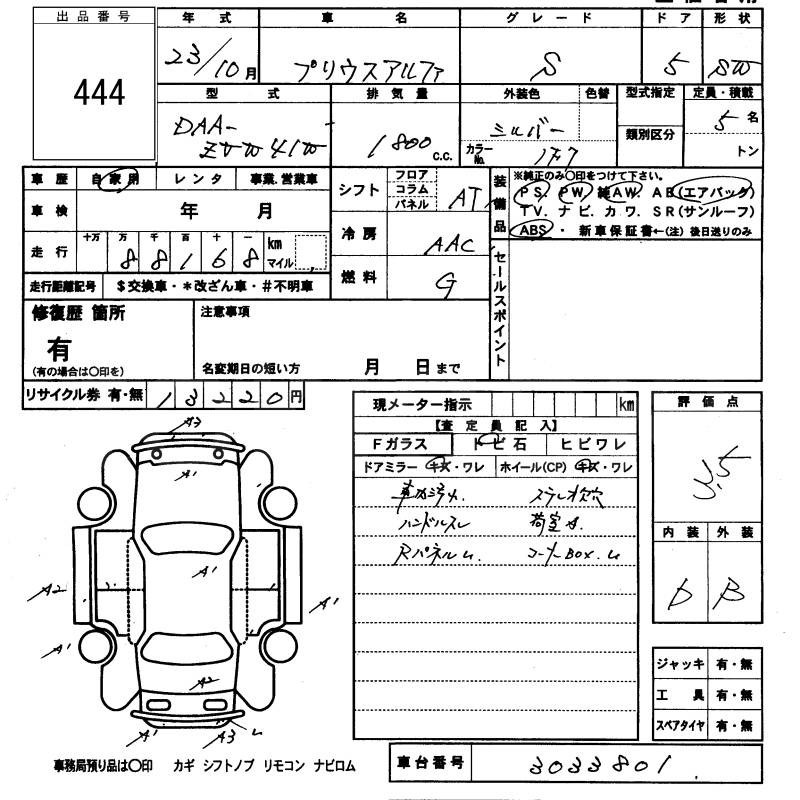 出品番号
444
年式
23/10月
車名
プリウスアルファ
グレード
S
ドア
5
形状
SW
型式
DAA-
ZVW41W
排気量
1800
C.C.
外装色
シルバー
色替
カラーNo.
1F7
型式指定
類別区分
定員・積載
5名
トン
車歴
自家用
レンタ
事業.営業車
車検
年 月
走行
十万 万 千 百 十 一
8 8 1 6 8
km
マイル
走行距離記号
$交換車・*改ざん車・#不明車
シフト
フロア
コラム
パネル
AT
冷房
AAC
燃料
G
装備品
※純正のみ〇印をつけて下さい。
PS. PW. 純AW. AB(エアバック)
TV. ナビ. カワ. SR(サンルーフ)
ABS・ 新車保証書←(注) 後日送りのみ
セールスポイント
修復歴 箇所
有
(有の場合は〇印を)
注意事項
名変期日の短い方
月 日まで
リサイクル券 有・無
13220円
現メーター指示
km
【査定員記入】
Fガラス
トビ石
ヒビワレ
ドアミラー キズ・ワレ
ホイール(CP) キズ・ワレ
ステレオ欠穴
ハンドルスレ
Rパネル
コーナーBOX.
評価点
3.5
内装
D
外装
B
ジャッキ 有・無
工具 有・無
スペアタイヤ 有・無
A3
A1
A2
A1
A1
A1
A2
A1
A3
事務局預り品は〇印 カギ シフトノブ リモコン ナビロム
車台番号
3033801